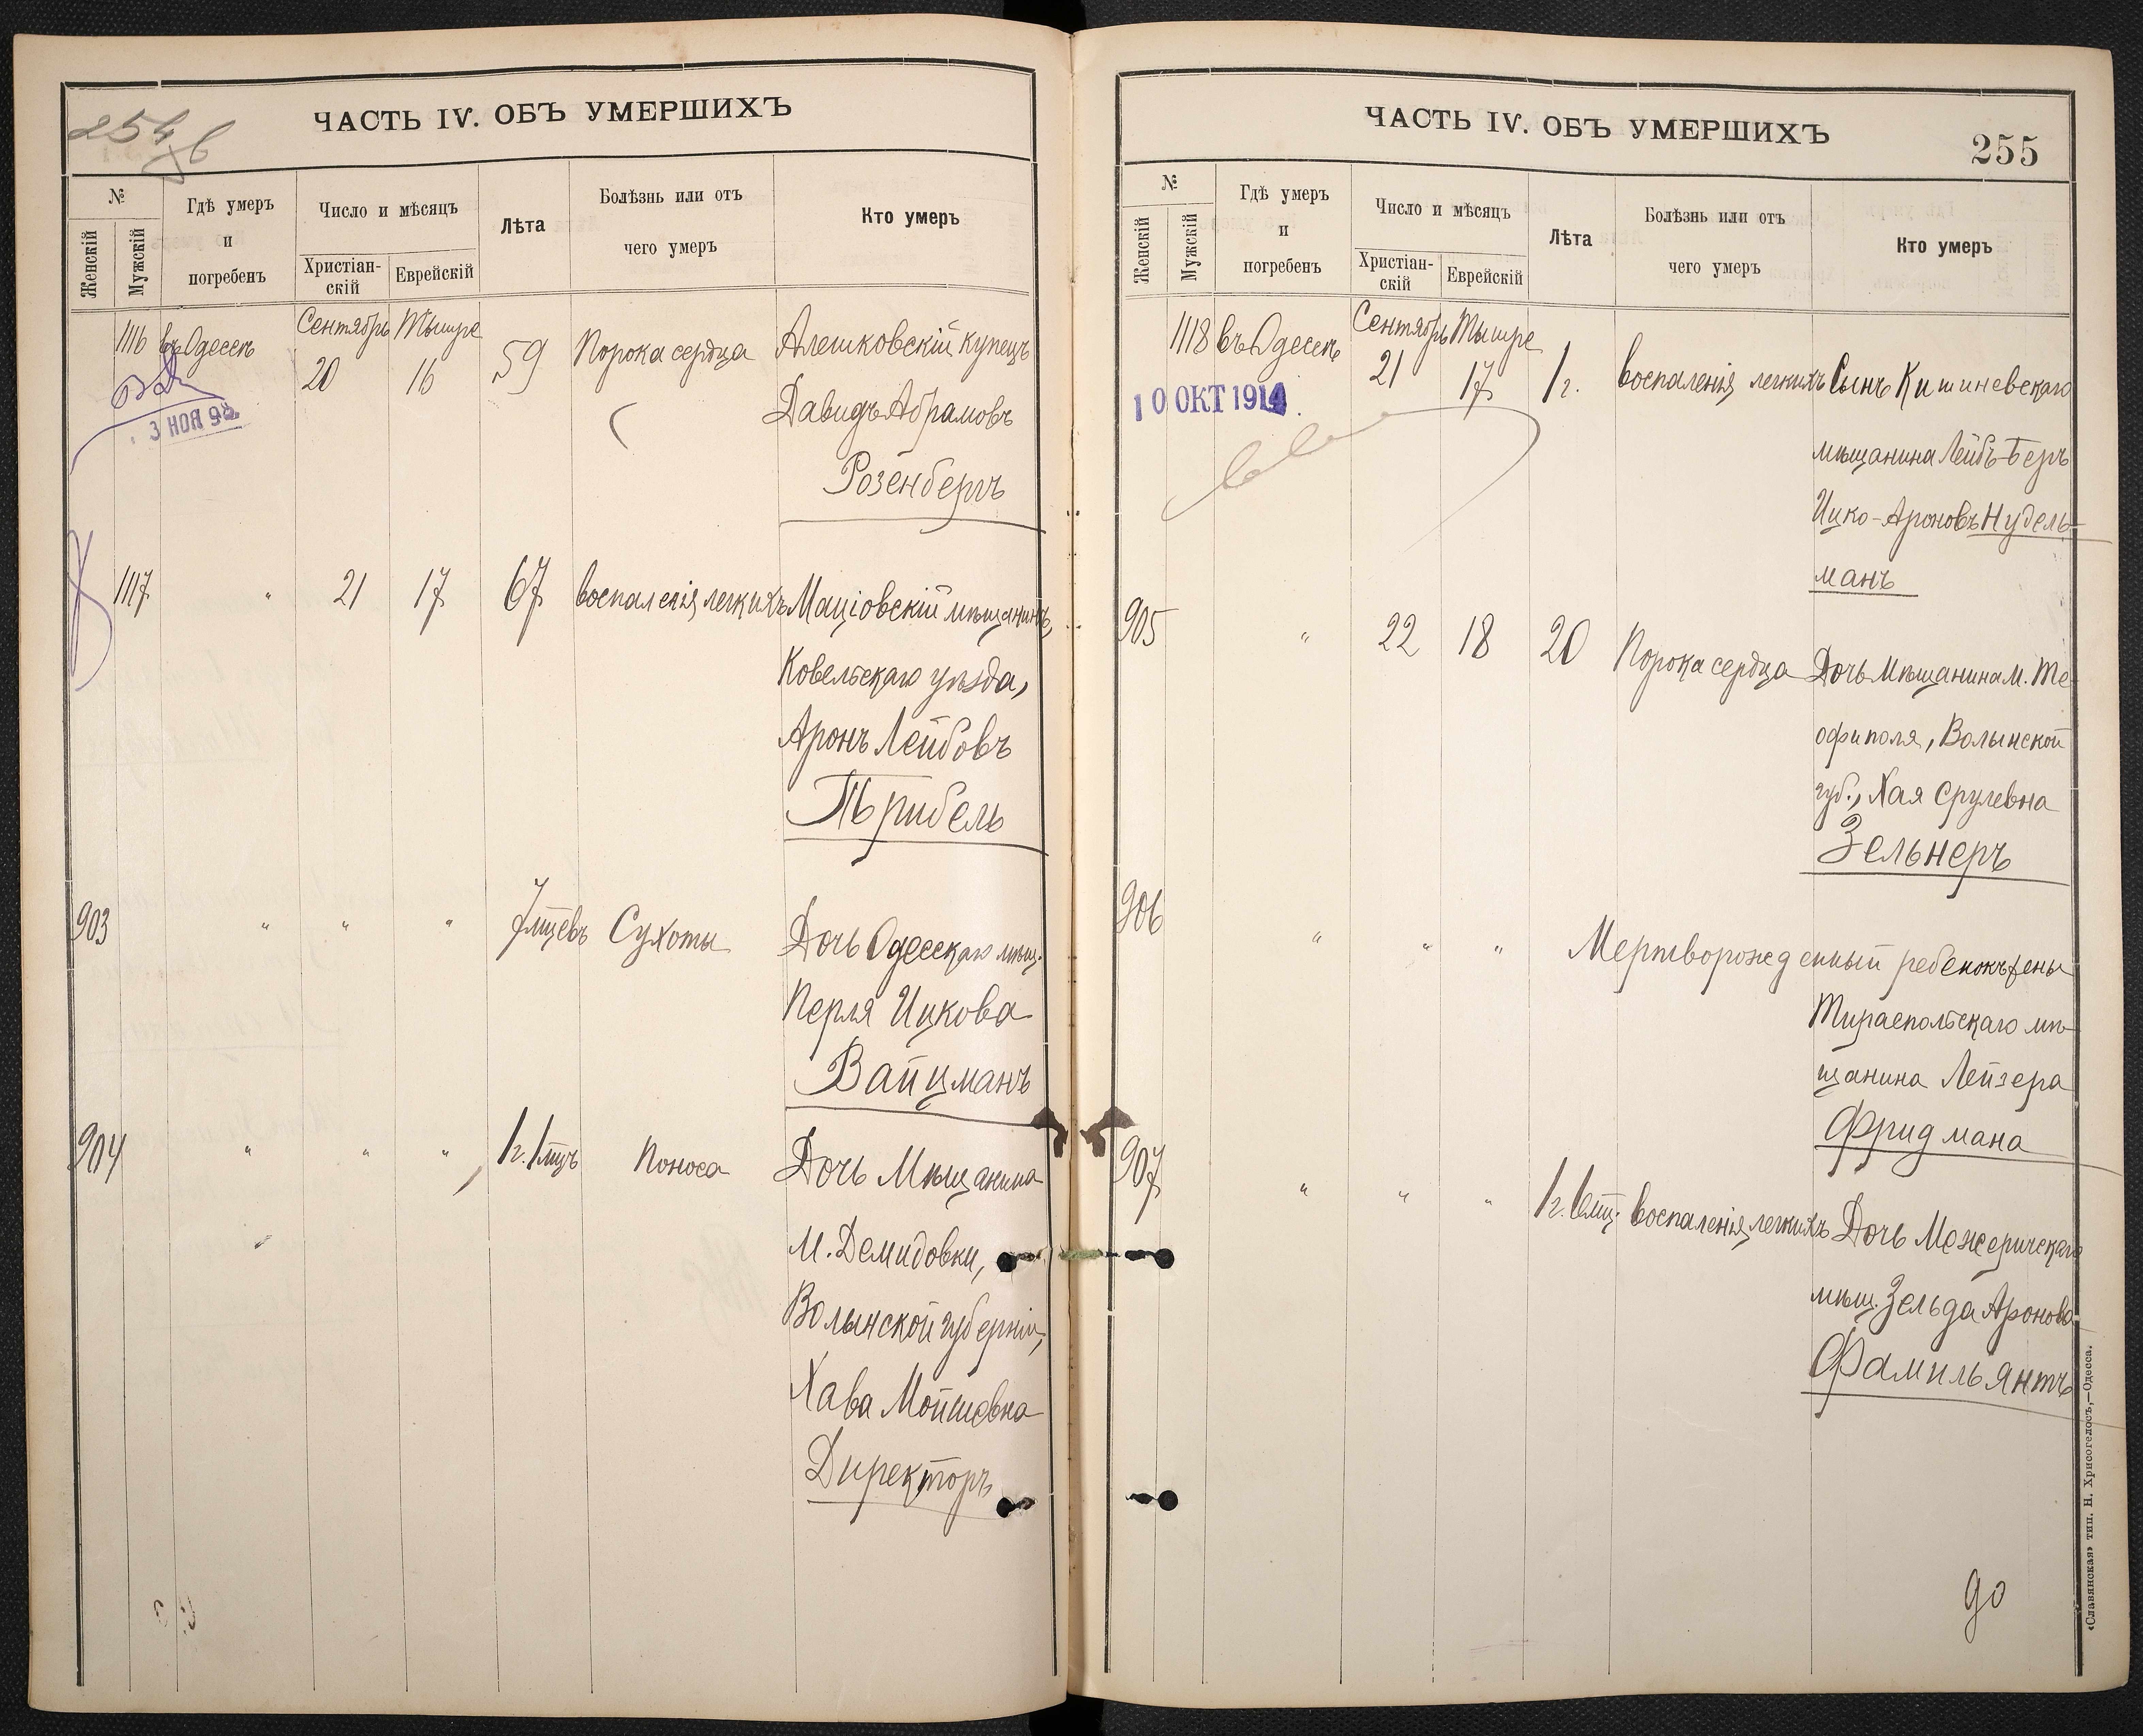 254 б
ЧАСТЬ IV. ОБЪ УМЕРШИХЪ
№
Женскій
Мужскій
Гдѣ умеръ
и
погребенъ
Число и мѣсяцъ
Христіан-
скій
Еврейскій
Лѣта
Болѣзнь или отъ
чего умеръ
Кто умеръ
1116 въ Одессѣ Сентябрь Тышре 59 Порока сердца Алешковскій купецъ
20 16
Давидъ Абрамовъ
3 НОЯ 93
Розенбергъ
1117 " 21 17 67 воспаленія легкихъ Маціовскій мѣщанинъ,
Ковельскаго уѣзда,
Аронъ Лейбовъ
903 " " " 7 мцевъ Сухоты Дочь Одесскаго мѣщ.
Перля Ицкова
Вайцманъ
904 " " " 1 г. 1 мцъ Поноса Дочь Мѣщанина
М. Демидовки,
Волынской губерніи,
Хава Мойшевна
Директоръ
ЧАСТЬ IV. ОБЪ УМЕРШИХЪ
255
№
Женскій
Мужскій
Гдѣ умеръ
и
погребенъ
Число и мѣсяцъ
Христіан-
скій
Еврейскій
Лѣта
Болѣзнь или отъ
чего умеръ
Кто умеръ
1118 въ Одессѣ Сентябрь Тышре 1 г. воспаленія легкихъ Сынъ Кишиневскаго
21 17
10 ОКТ 1914
мѣщанина Лейбъ-Беръ
Ицко-Ароновъ Нудель-
манъ
905 " 22 18 20 Порока сердца Дочь Мѣщанина М. Те-
офиполя, Волынской
губ., Хая Срулевна
Зельнеръ
906 " " " Мертворожденный ребенокъ жены
Тираспольскаго мѣ-
щанина Лейзера
Фридмана
907 " " " 1 г. 6 мц. воспаленія легкихъ Дочь Межеричскаго
мѣщ. Зельда Аронова
Фамильянтъ
«Славянская» тип. Н. Хрисогелосъ,—Одесса.